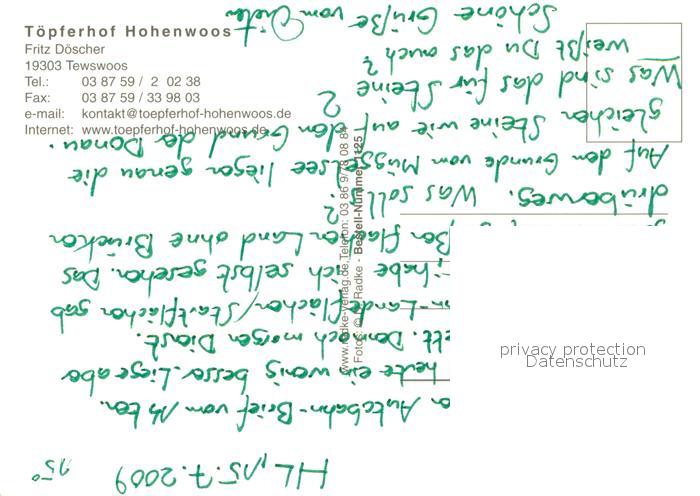 Töpferhof Hohenwoos
Fritz Döscher
19303 Tewswoos
Tel.: 03 87 59 / 2 02 38
Fax: 03 87 59 / 33 98 03
e-mail: kontakt@toepferhof-hohenwoos.de
Internet: www.toepferhof-hohenwoos.de
HL, 15.7.2009 15°
Autobahn-Brief vom 14ten.
heute ein wenig besser. Liege aber
ett. Dennoch morgen Dienst.
n-Landeflächen/Startflächen gab
habe ich selbst gesehen. Das
Land ohne Brücken
drüberweg. Was soll's?
Auf dem Grunde vom Müggelsee liegen genau die
gleichen Steine wie auf dem Grund der Donau.
Was sind das für Steine?
weißt Du das auch?
Schöne Grüße vom Dieter
www.radke-verlag.de, Telefon: 03 86
Radke - Bestell-Nummer 1125
privacy protection
Datenschutz